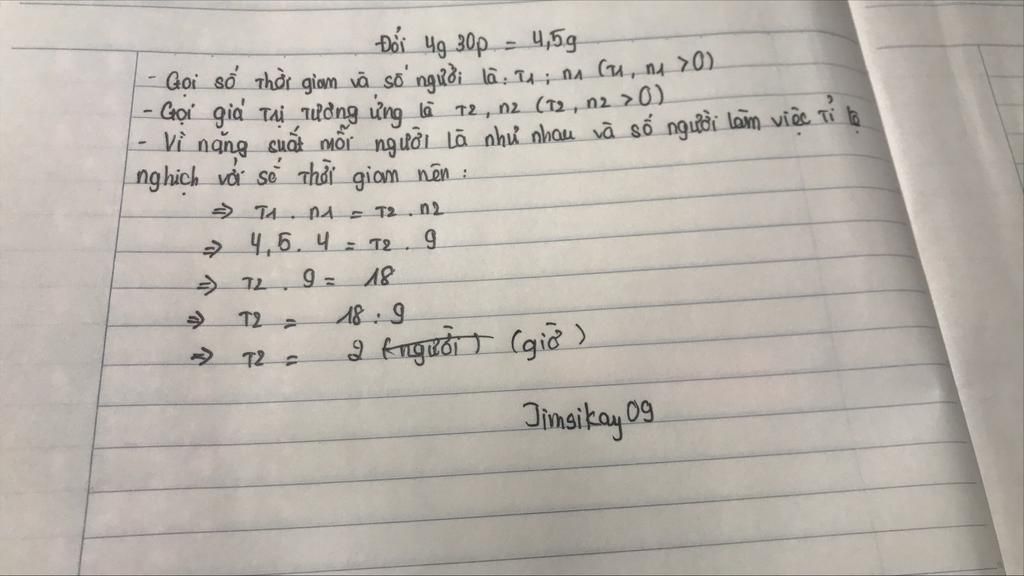 Đổi 4g 30p = 4,5g
- Gọi số thời gian và số người là: T1; n1 (T1, n1 >0)
- Gọi giá trị tương ứng là T2, n2 (T2, n2 >0)
- Vì năng suất mỗi người là như nhau và số người làm việc tỉ lệ
nghịch với số thời gian nên:
⇒ T1 . n1 = T2 . n2
⇒ 4,5 . 4 = T2 . 9
⇒ T2 . 9 = 18
⇒ T2 = 18 : 9
⇒ T2 = 2 (người) (giờ)
Jimsikay09